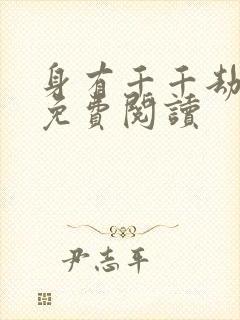 身有千千劫
免費閱讀
尹志平